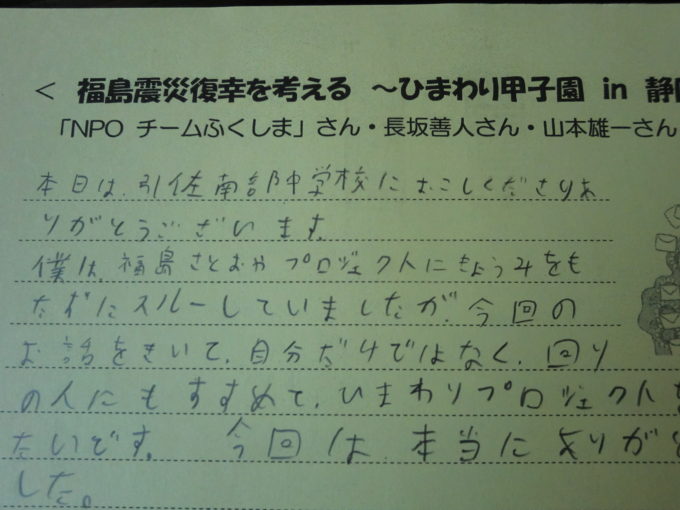 < 福島震災復幸を考える ～ひまわり甲子園 in 静
「NPO チームふくしま」さん・長坂善人さん・山本雄一さん
本日は、引佐南部中学校におこしくださりあ
りがとうございます。
僕は、福島さとおやプロジェクトにきょうみをも
たずにスルーしていましたが、今回の
お話をきいて、自分だけではなく、回り
の人にもすすめて、ひまわりプロジェクトを
たいです。 今回は、本当にありがと
した。